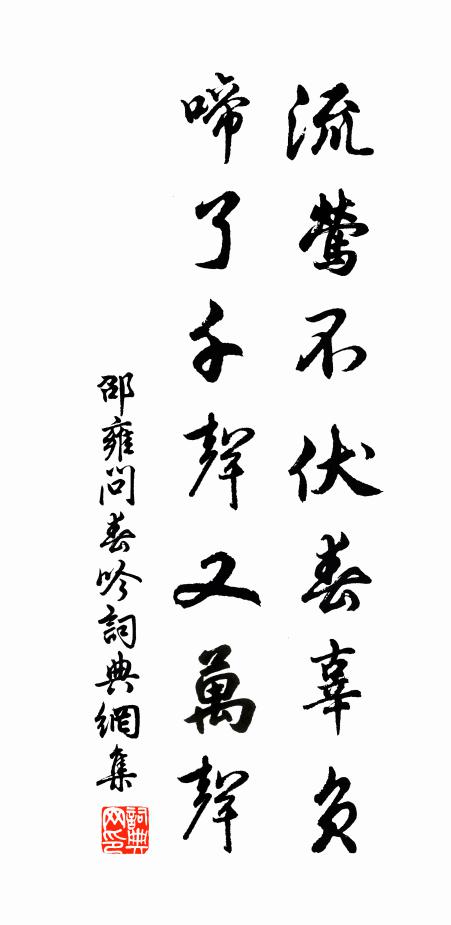 流鶯不伏春辜負
啼了千聲又萬聲
邵雍問春吟詞典網集
詞典网印